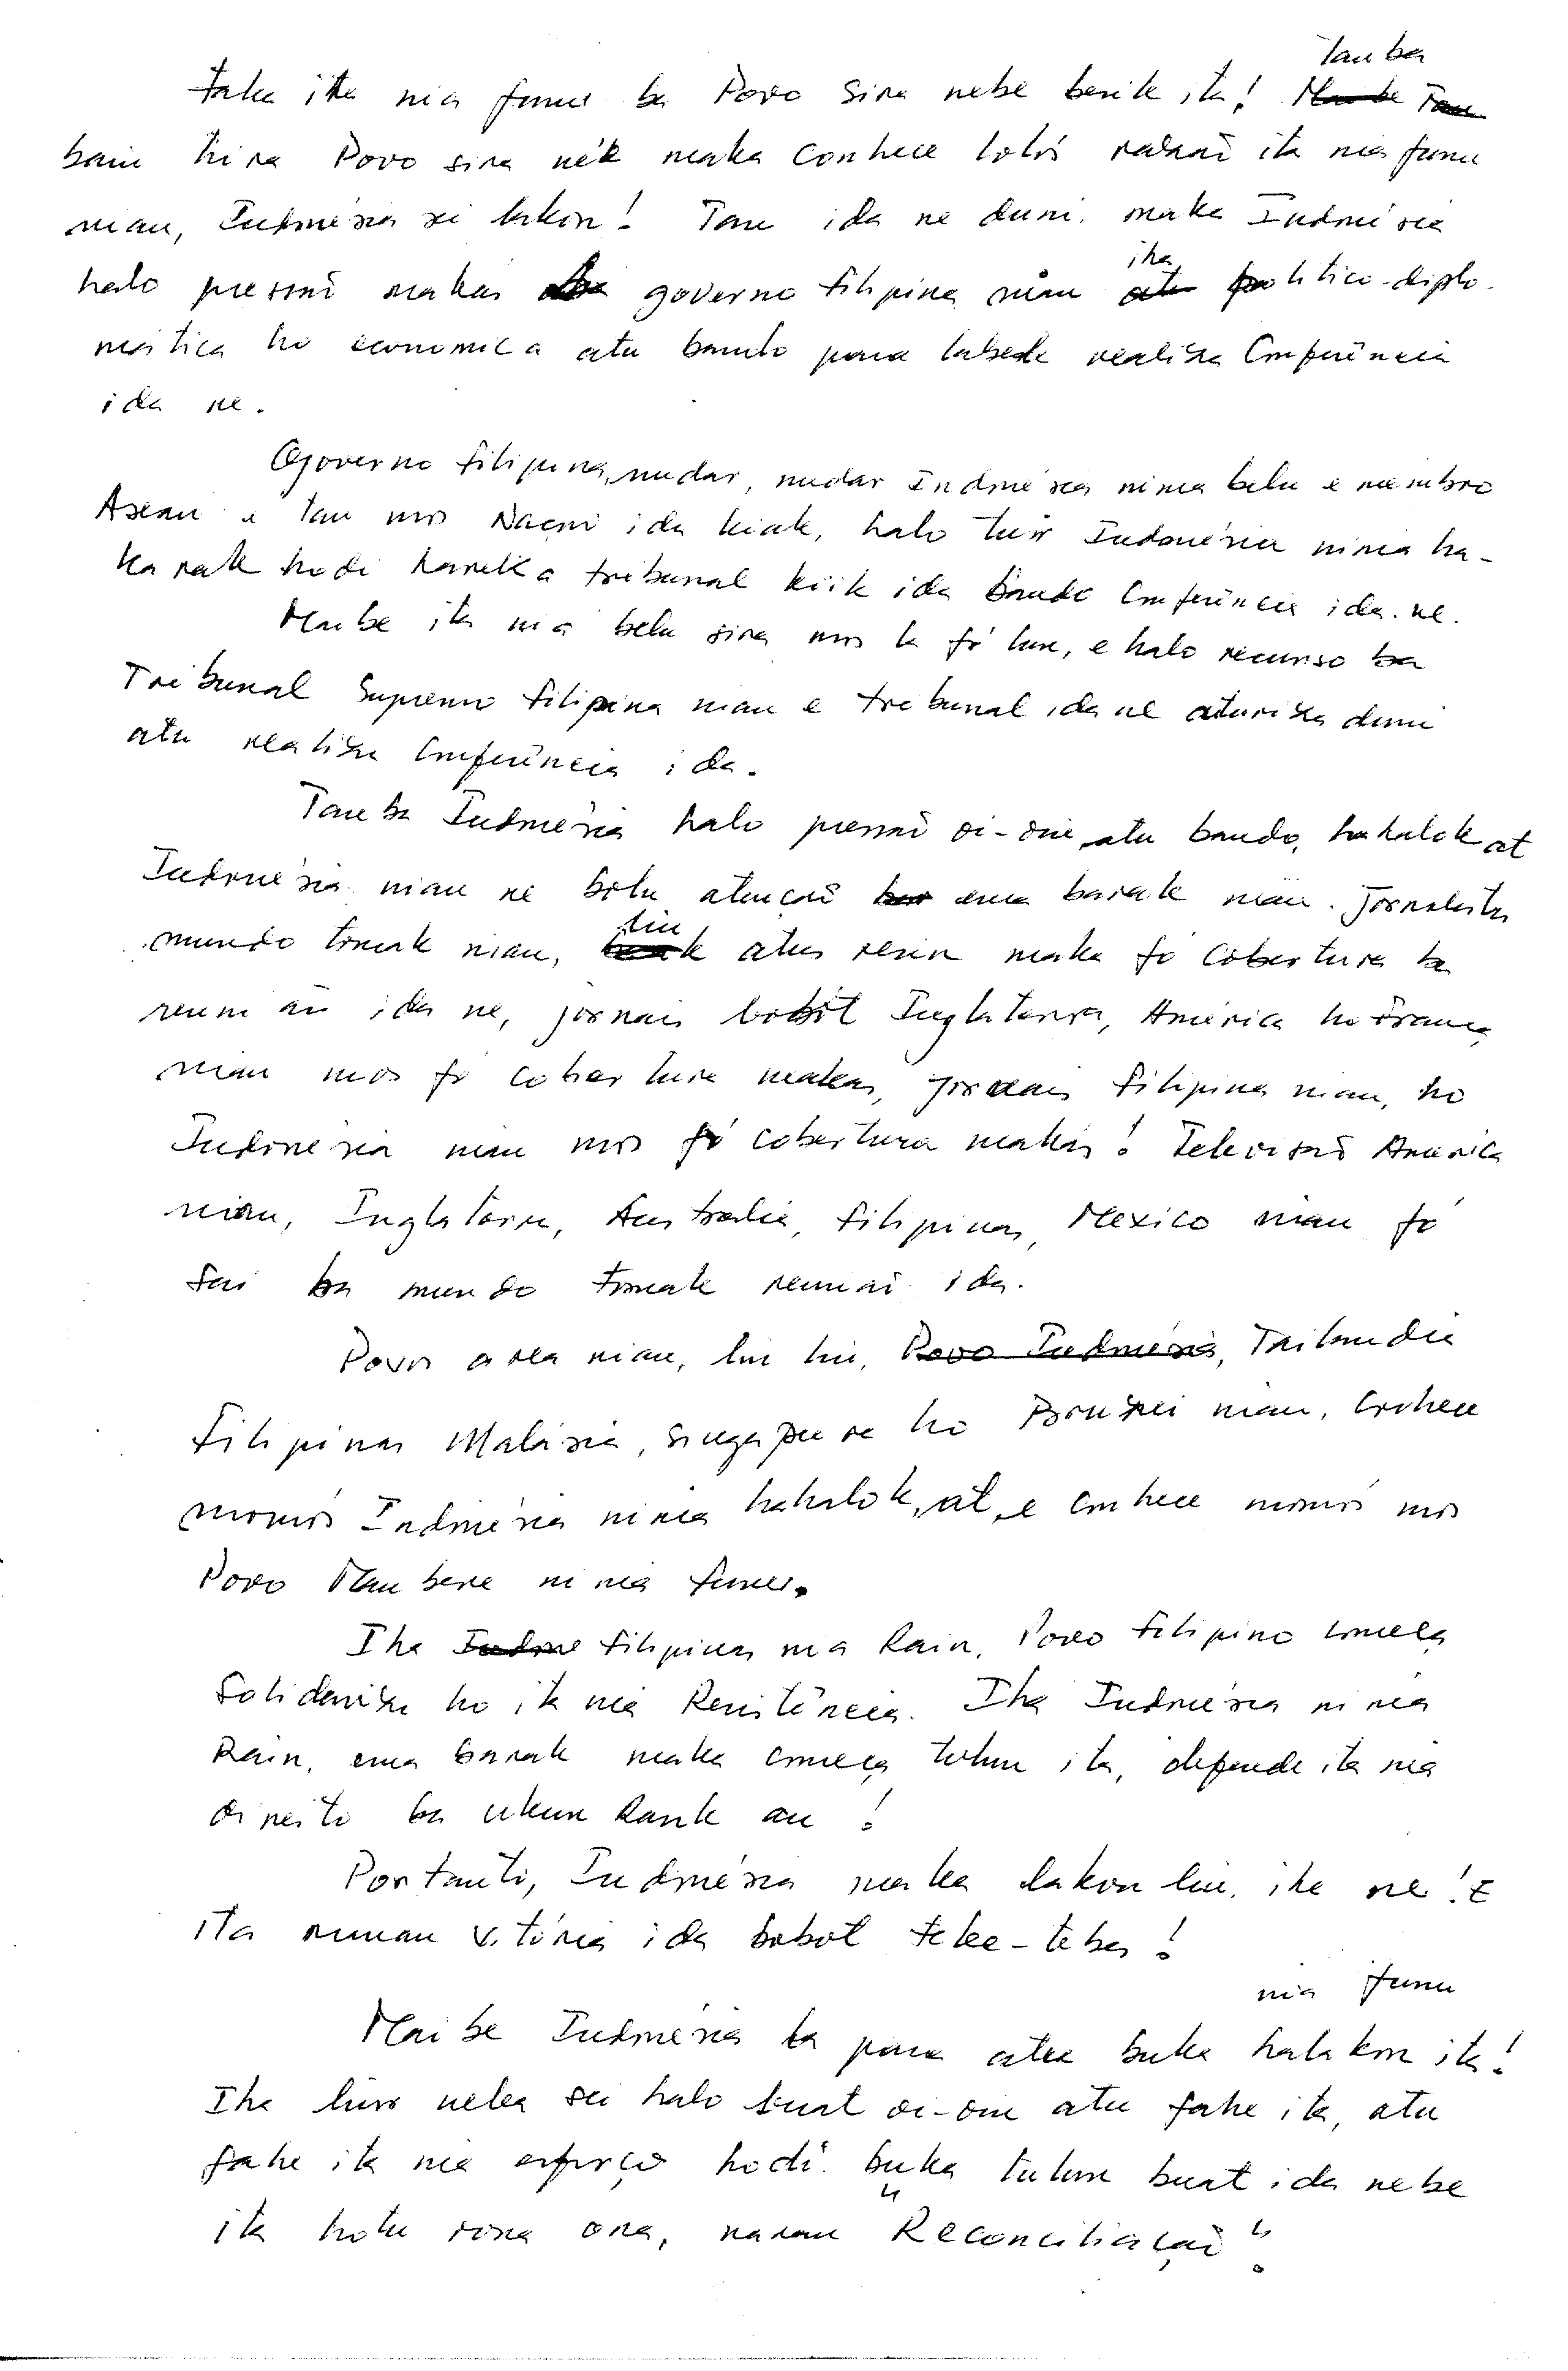 taka ita nia funu ba Povo sira nebe besik ita! Tau ba
bain hira Povo sira nék maka conhece lolós razaõ ita nia funu
nian, Indonésia sei lakon! Tau ida ne duni. maka Indonésia
halo pressaõ makas governo filipina nian iha politico-diplo-
mática ho economica atu bando para labele realiza Conferência
ida ne.
Governo filipina, nudar, nudar Indonésia ninia belu e membro
Asean e tau mos Naçaõ ida kiak, halo tuir Indonésia ninia ha-
karak hodi haruka tribunal kiik ida bando Conferência ida ne.
Maibe ita nia belu sira mos la fó lun, e halo recurso ba
Tribunal Supremo filipina nian e tribunal ida ne autoriza duni
atu realiza Conferência ida.
Tau ba Indonésia halo pressaõ oi-oin atu bando, hahalok at
Indonésia nian ne bolu atençaõ ema barak nian. Jornalista
mundo tomak nian, liu atus resin maka fó cobertura ba
reuniaõ ida ne, jornais bobót Inglaterra, América ho França
nian mos fó cobertura makas, jornais filipinas nian, ho
Indonésia nian mos fó cobertura makas! Televisaõ América
nian, Inglaterra, Australia, filipinas, Mexico nian fó
sai ba mundo tomak reuniaõ ida.
Povos area nian, liu liu, Povo Indonésia, Tailandia
filipinas Malásia, Singapura ho Brunei nian, conhece
momós Indonésia ninia hahalok, at, e conhece momós mos
Povo Maubere ninia funu.
Iha filipinas nia Rain, Povo filipino começa
Solidariza ho ita nia Resistência. Iha Indonésia ninia
Rain, ema barak maka começa tulun ita, defende ita nia
direito ba ukun Rasik an!
Portanto, Indonésia maka lakon liu, iha ne! E
ita manan vitória ida bobot tebe-tebes!
nia funu
Maibe Indonésia la para atu buka halakon ita!
Iha liur neba sei halo buat oi-oin atu fahe ita, atu
fahe ita nia esforço hodi buka tulun buat ida nebe
ita hotu rona ona, naran "Reconciliaçaõ"!